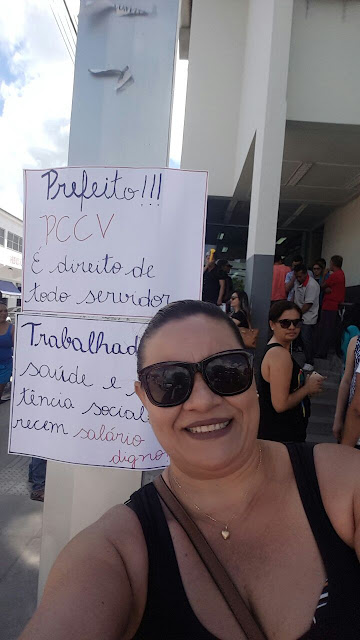 Prefeito!!!
PCCV
É direito de
todo servidor
Trabalhad
saúde e
tência social
recem salário
digno